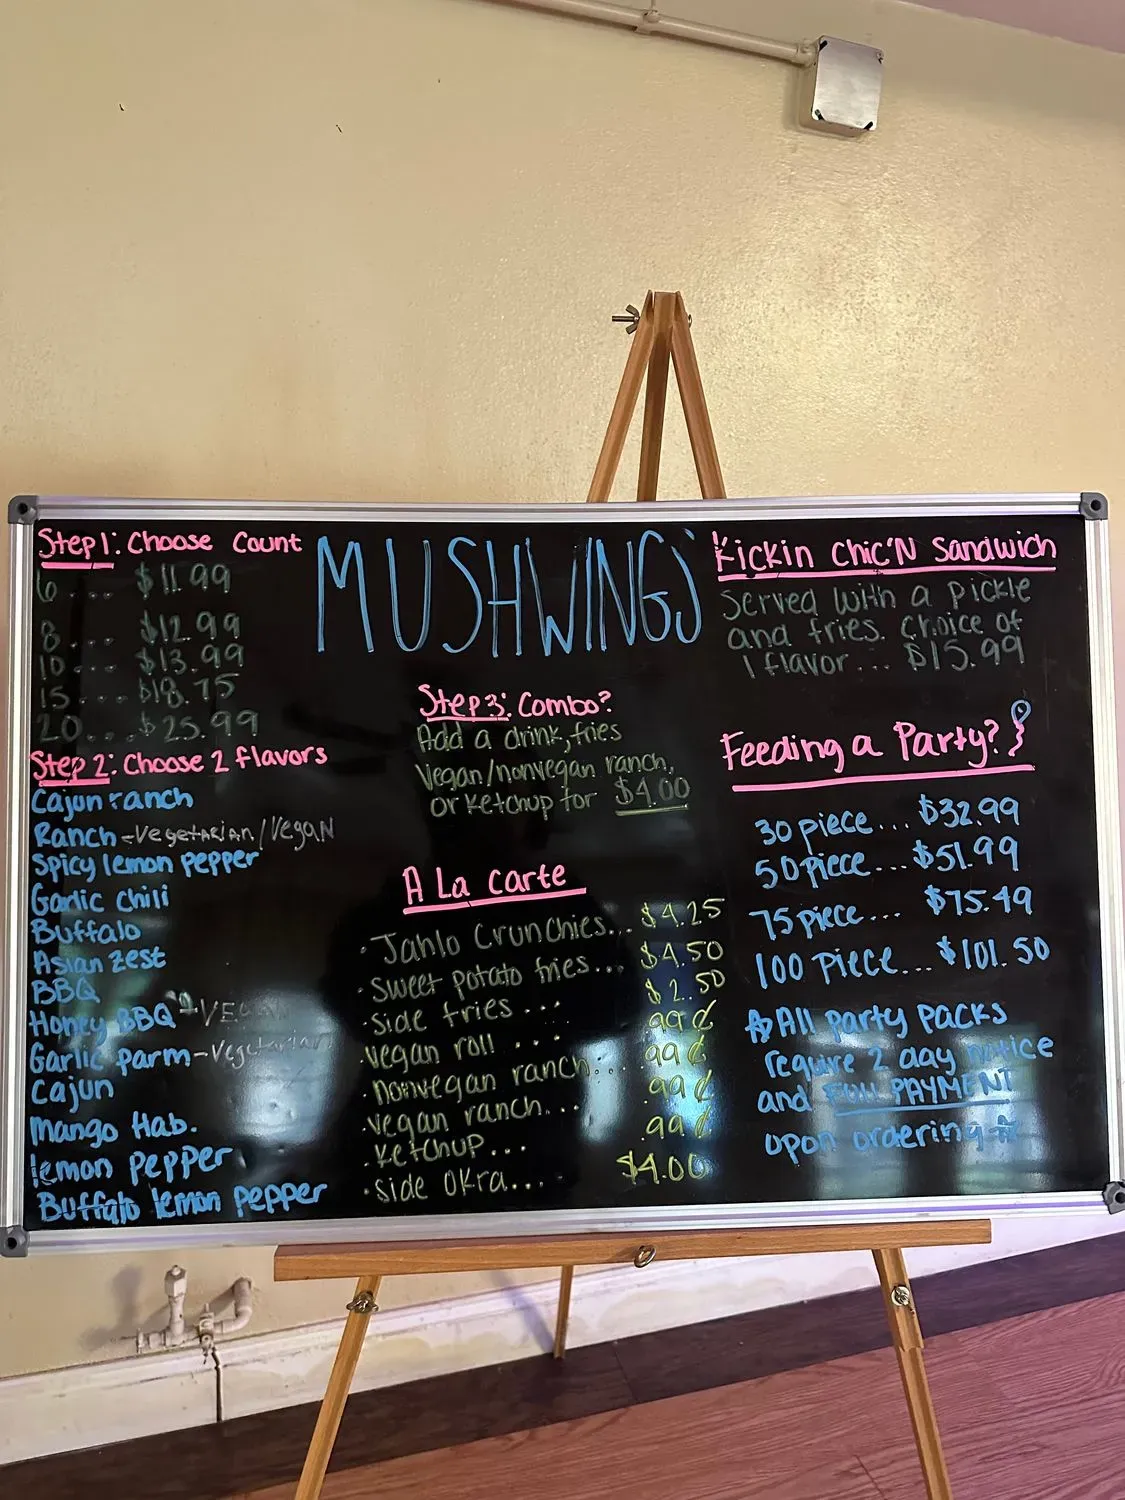 Step 1: Choose Count
6 ... $11.99
8 ... $12.99
10 ... $13.99
15 ... $18.75
20 ... $25.99
Step 2: Choose 2 flavors
Cajun ranch
Ranch - Vegetarian/Vegan
Spicy lemon pepper
Garlic chili
Buffalo
Asian zest
BBQ
Honey BBQ - VEGAN
Garlic parm - Vegetarian
Cajun
Mango Hab.
lemon pepper
Buffalo lemon pepper
MUSHWINGS
Step 3: Combo?
Add a drink, fries
Vegan/nonvegan ranch,
or ketchup for $4.00
A La carte
· Jahlo Crunchies... $4.25
· sweet potato fries... $4.50
· side fries ... $2.50
· vegan roll ... .99¢
· nonvegan ranch... .99¢
· vegan ranch... .99¢
· ketchup... .99¢
· side okra... $4.00
Kickin Chic'N Sandwich
served with a pickle
and fries. choice of
1 flavor... $15.99
Feeding a Party?
30 piece... $32.99
50 piece... $51.99
75 piece... $75.49
100 piece... $101.50
☆ All party packs
require 2 day notice
and FULL PAYMENT
upon ordering ☆